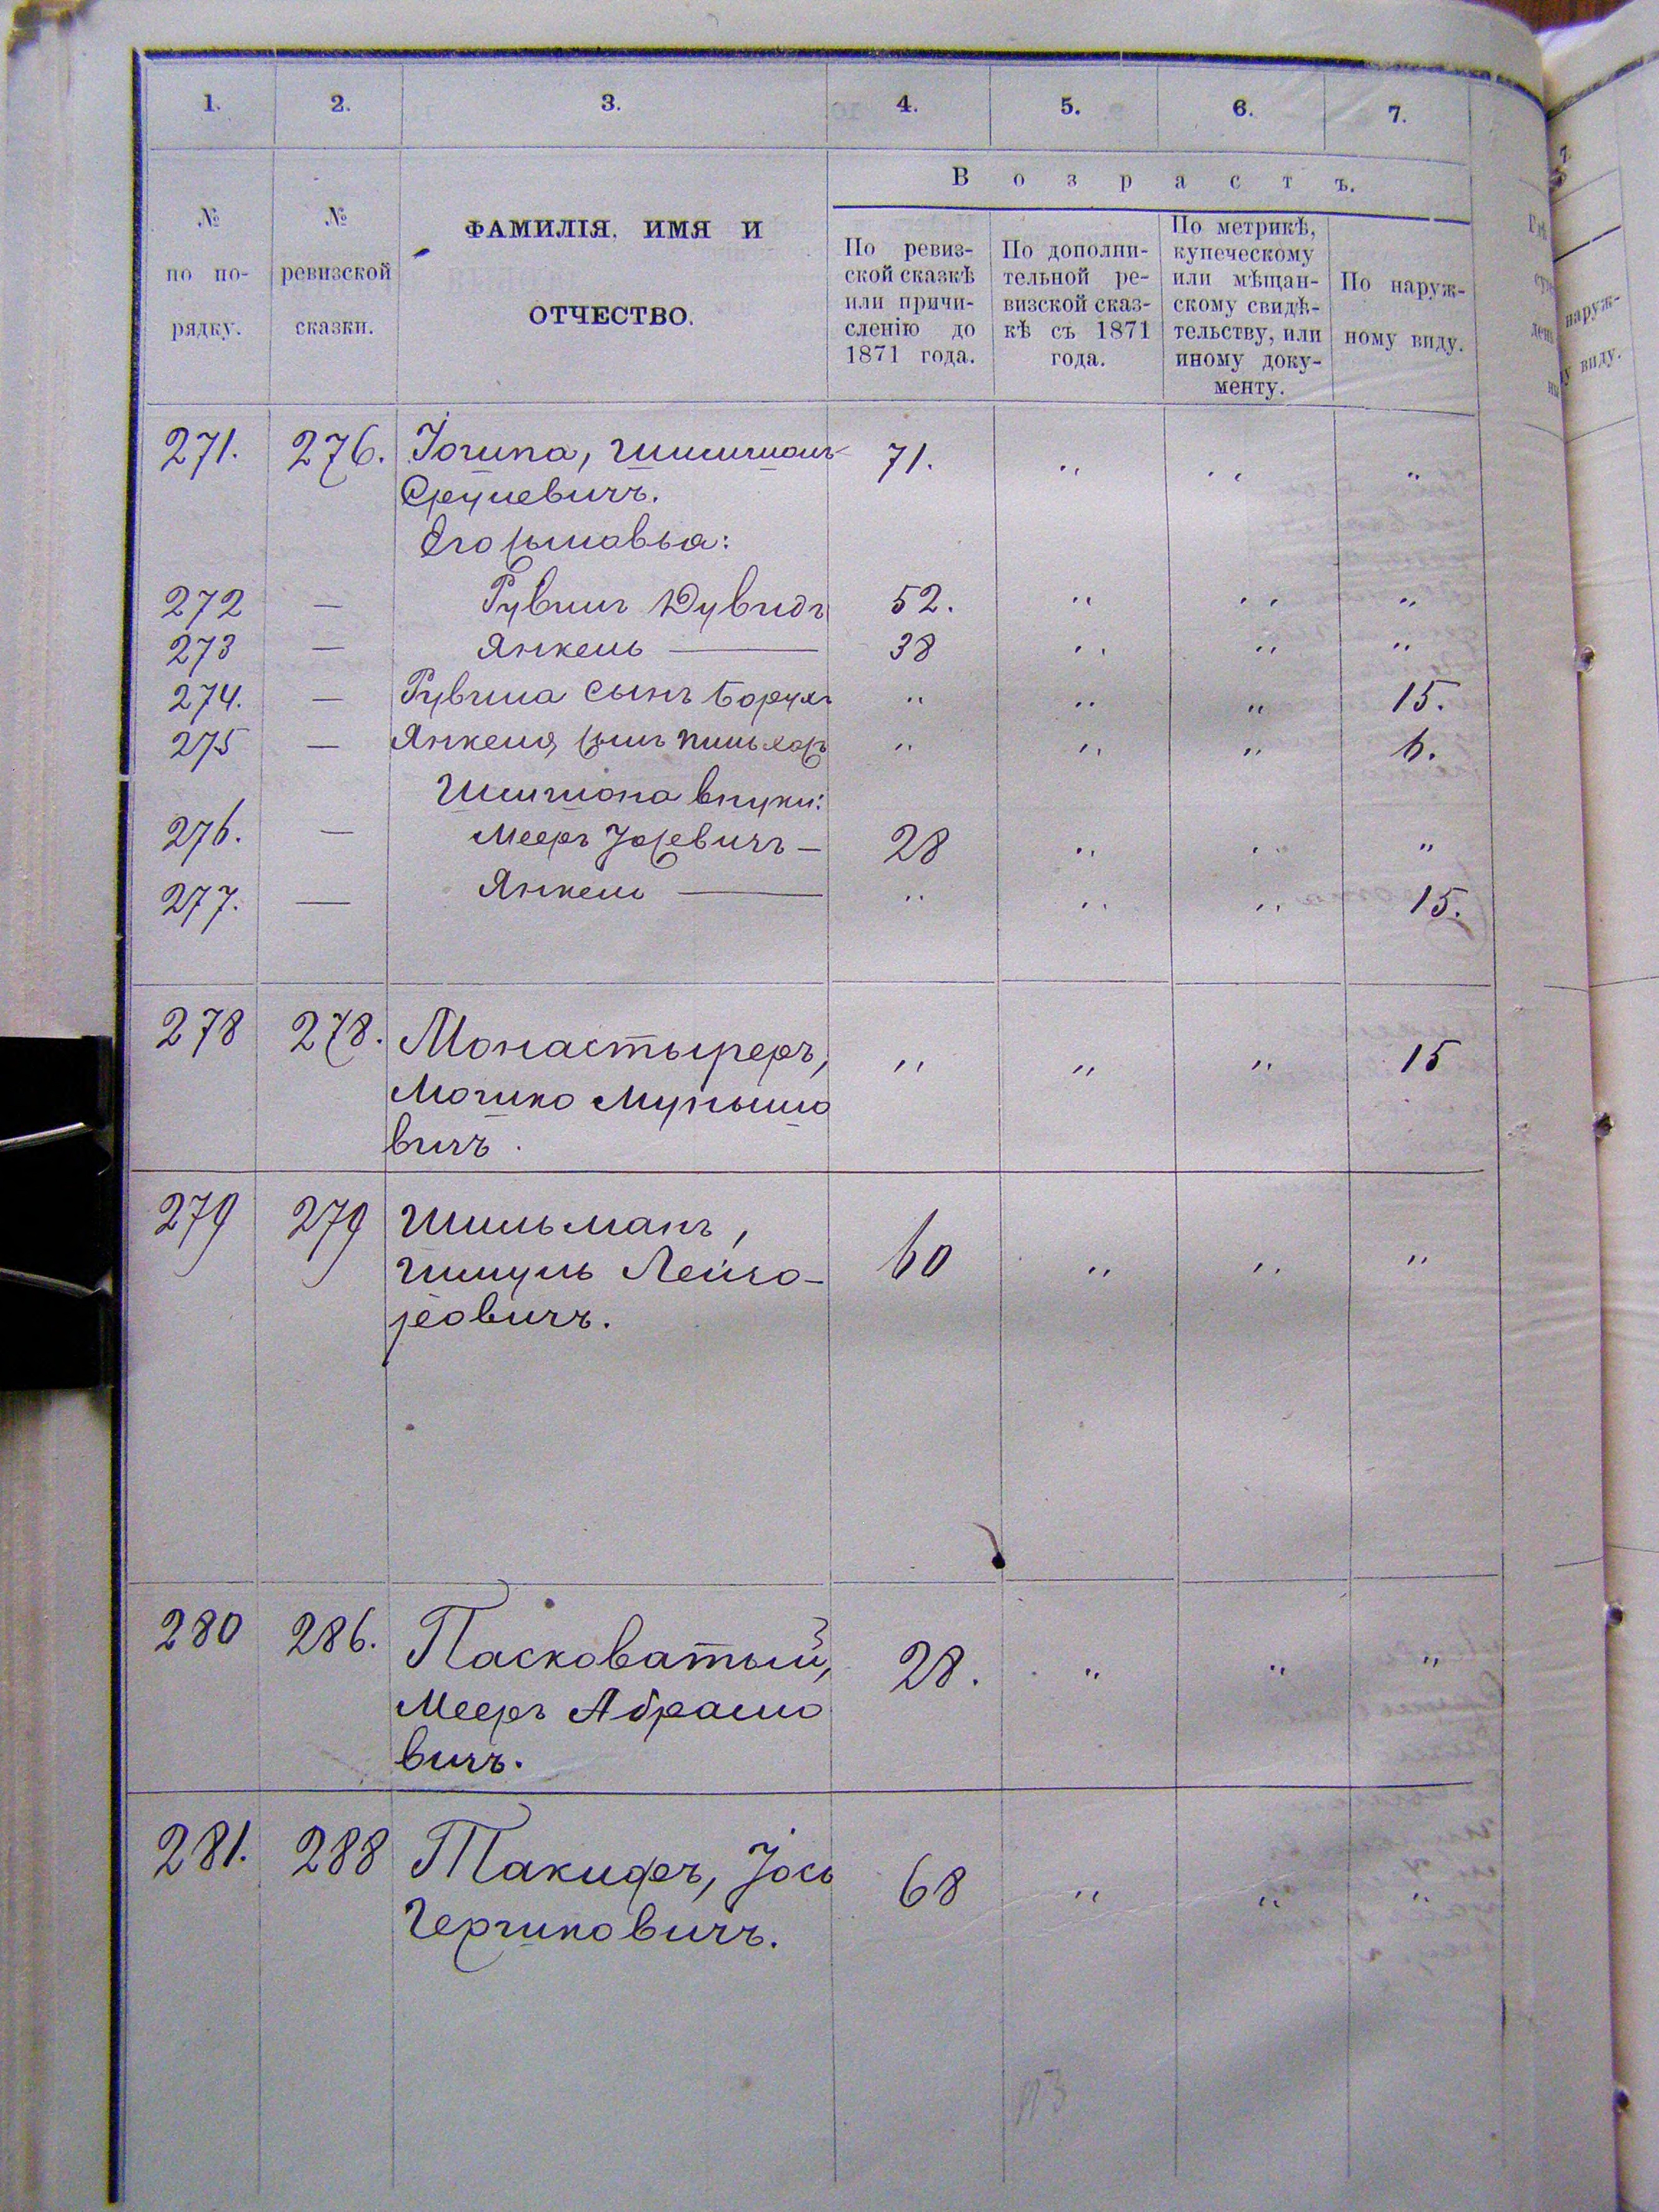 1. 2. 3. 4. 5. 6. 7.
В о з р а с т ъ.
№ по по-рядку.
№ ревизской сказки.
ФАМИЛІЯ, ИМЯ И
ОТЧЕСТВО.
По ревиз-
ской сказкѣ
или причи-
сленію до
1871 года.
По дополни-
тельной ре-
визской сказ-
кѣ съ 1871
года.
По метрикѣ,
купеческому
или мѣщан-
скому свидѣ-
тельству, или
иному доку-
менту.
По наруж-
ному виду.
271. 276. 71. „ „ „
272 — Рувинъ Дувидъ 52. „ „ „
273 — Янкель — 38 „ „ „
274. — Рувина сынъ Борухъ „ „ „ 15.
275 — Янкеля сынъ „ „ „ 6.
Шимшона внуки:
276. — Мееръ Іосевичъ — 28 „ „ „
277. — Янкель — „ „ „ 15.
278 278. Монастыреръ, „ „ „ 15
Мошко
вичъ.
279 279 Шильманъ, 60 „ „ „
Шмуль Лейзо-
ровичъ.
280 286. Пасковатый, 28. „ „ „
Мееръ Абрамо
вичъ.
281. 288 Такиферъ, Іось 68 „ „ „
Гершковичъ.
наруж-
виду.